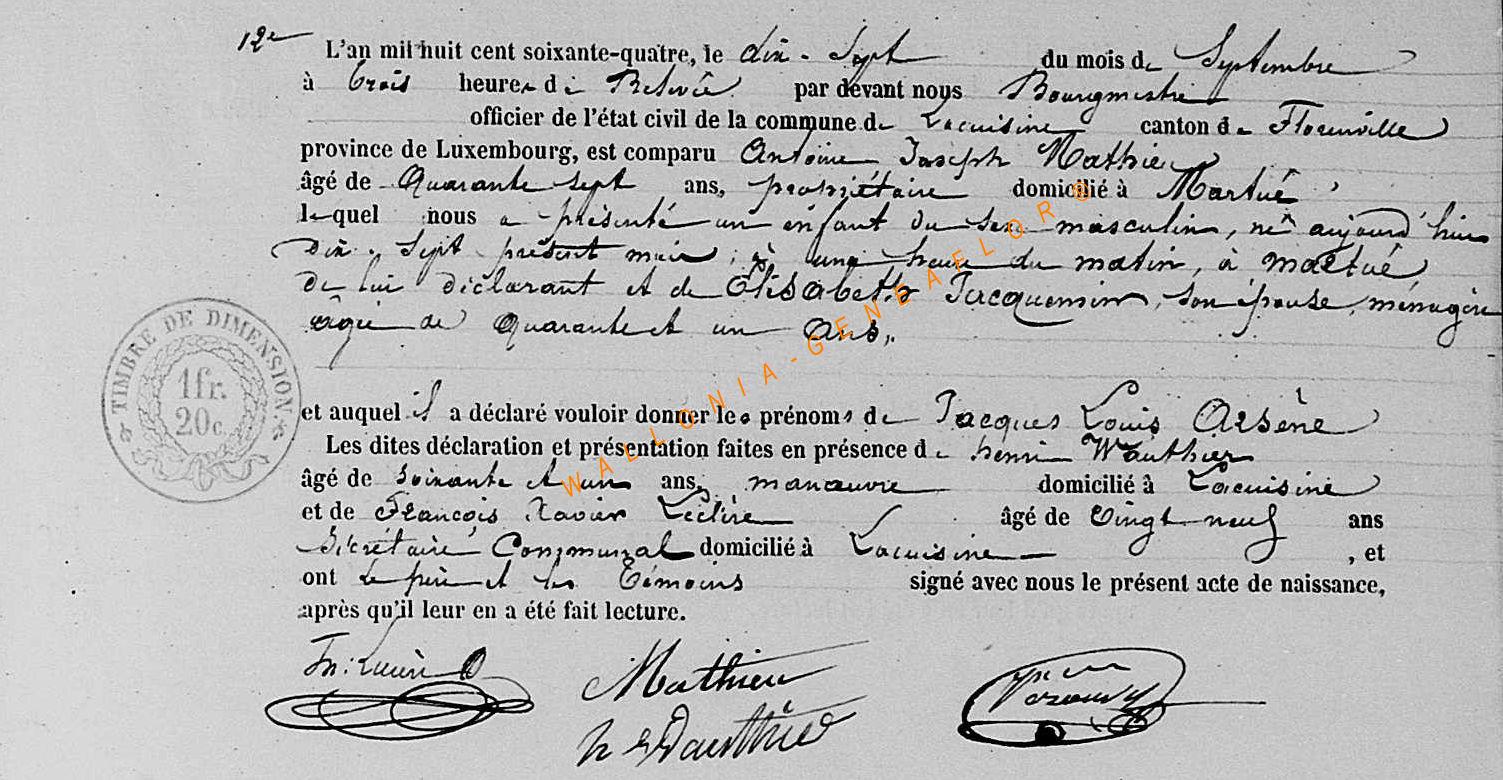 12e
L'an mil huit cent soixante-quatre, le dix-sept du mois de Septembre
à trois heures de Relevée par devant nous Bourgmestre
officier de l'état civil de la commune de Lacuisine canton de Florenville
province de Luxembourg, est comparu Antoine Joseph Mathieu
âgé de Quarante sept ans, propriétaire domicilié à Martué,
lequel nous a présenté un enfant du sexe masculin, né aujourd'hui
dix-sept présent mois, à une heure du matin, à Martué
de lui déclarant et de Élisabeth Jacquemin, son épouse, ménagère
âgée de Quarante et un Ans,.
et auquel il a déclaré vouloir donner les prénoms de Jacques Louis Arsène
Les dites déclaration et présentation faites en présence de henri Wauthier
âgé de soixante et un ans, manœuvre domicilié à Lacuisine
et de François Xavier Leclère âgé de Vingt neuf ans
Secrétaire Communal domicilié à Lacuisine, et
ont le père et les témoins signé avec nous le présent acte de naissance,
après qu'il leur en a été fait lecture.
Mathieu
h Wauthier
TIMBRE DE DIMENSION.
1fr.
20c.
WALLONIA-GENEAFLOR®